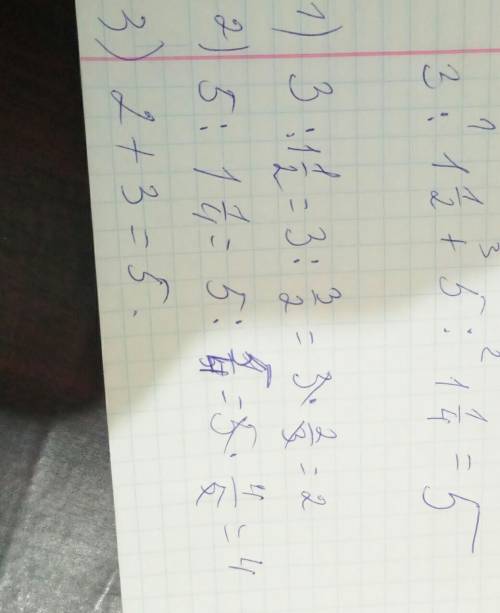 3 : 1 1/2 + 5 : 1 1/4 = 5
1 3 2
1) 3 : 1 1/2 = 3 : 3/2 = 3 · 2/3 = 2
2) 5 : 1 1/4 = 5 : 5/4 = 5 · 4/5 = 4
3) 2 + 3 = 5.